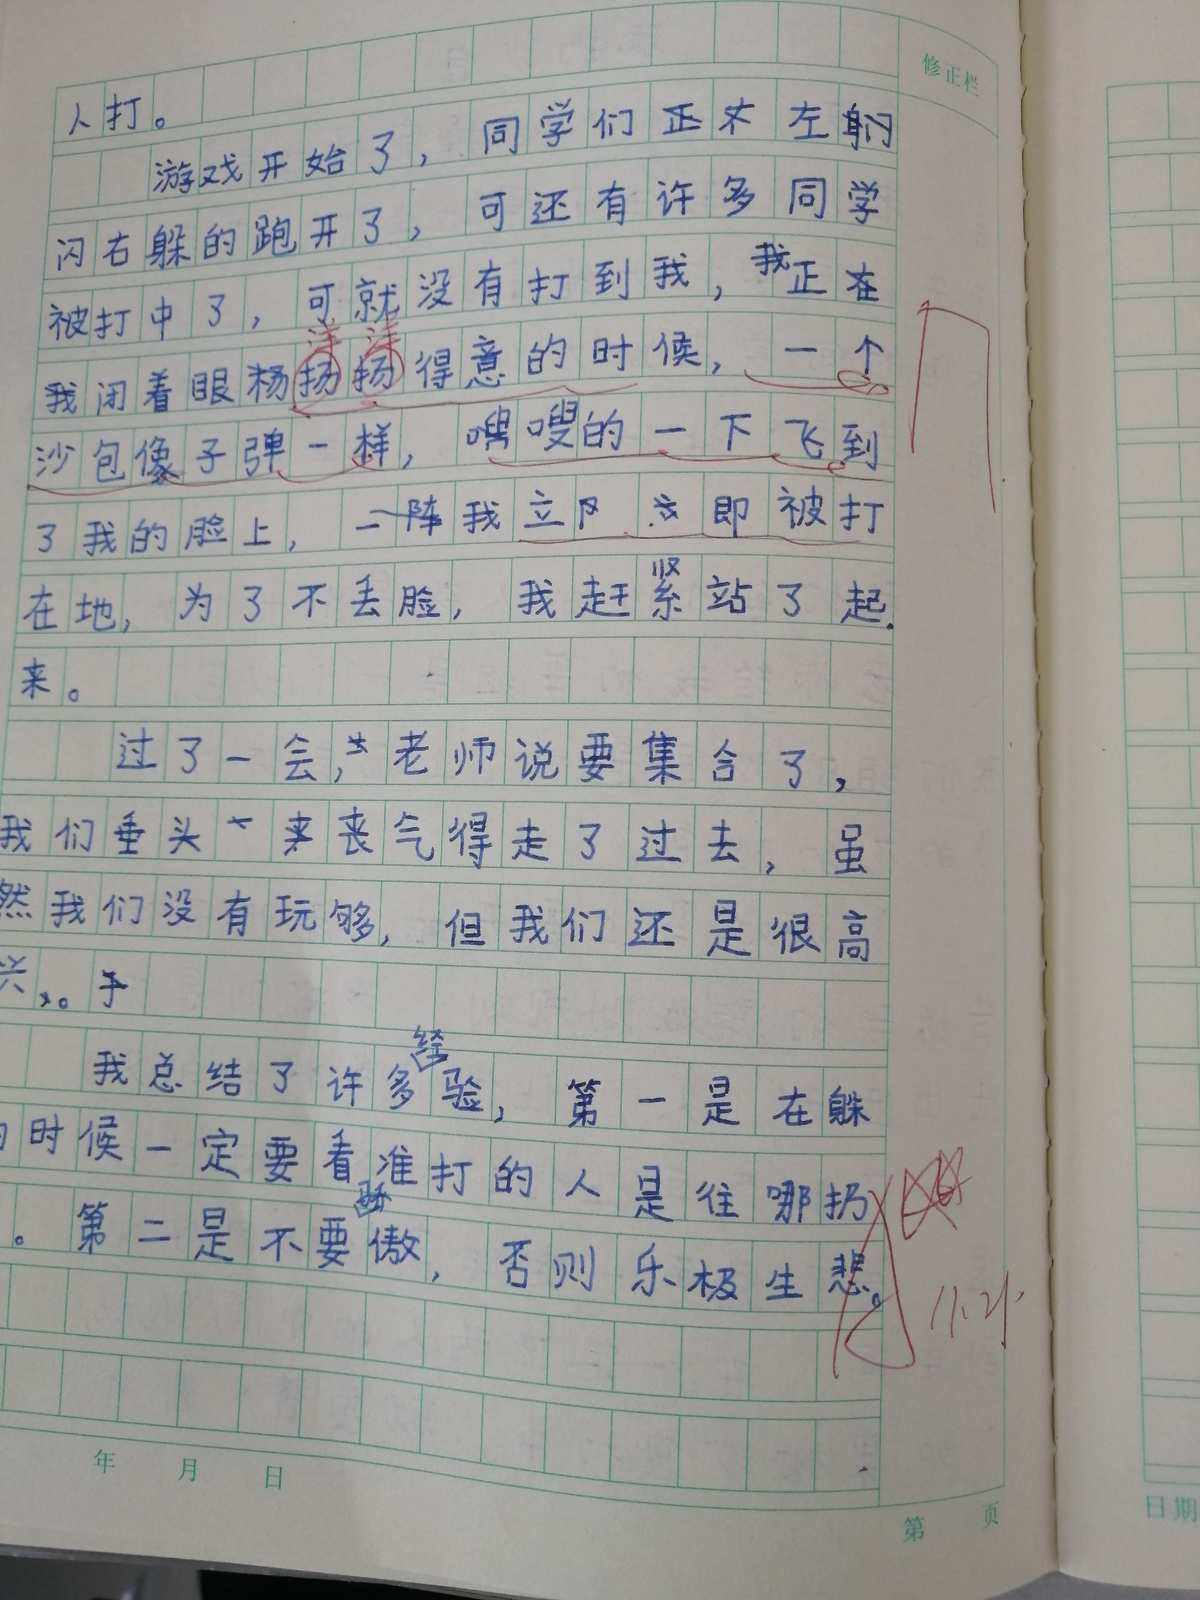 修正栏
人打。
游戏开始了，同学们正在左躲
闪右躲的跑开了，可还有许多同学
被打中了，可就没有打到我，我正在
洋洋
我闭着眼杨扬扬得意的时候，一个
沙包像子弹一样，嗖嗖的一下飞到
了我的脸上，一阵我立即被打
在地，为了不丢脸，我赶紧站了起
来。
过了一会，老师说要集合了，
我们垂头丧气得走了过去，虽
然我们没有玩够，但我们还是很高
兴。
我总结了许多经验，第一是在躲
的时候一定要看准打的人是往哪扔
。第二是不要骄傲，否则乐极生悲。
11.21.
年 月 日
第 页
日期